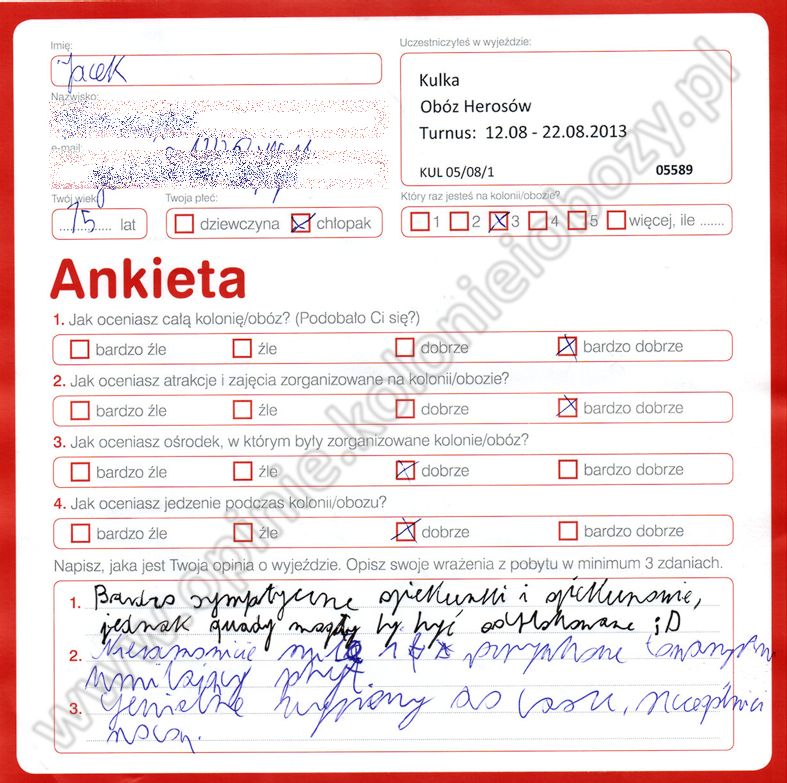 Imię:
Jacek
Nazwisko:
e-mail
Twój wiek
15 lat
Twoja płeć:
dziewczyna chłopak
Uczestniczyłeś w wyjeździe:
Kulka
Obóz Herosów
Turnus: 12.08 - 22.08.2013
KUL 05/08/1 05589
Który raz jesteś na kolonii/obozie?
1 2 3 4 5 więcej, ile .......
Ankieta
1. Jak oceniasz całą kolonię/obóz? (Podobało Ci się?)
bardzo źle źle dobrze bardzo dobrze
2. Jak oceniasz atrakcje i zajęcia zorganizowane na kolonii/obozie?
bardzo źle źle dobrze bardzo dobrze
3. Jak oceniasz ośrodek, w którym były zorganizowane kolonie/obóz?
bardzo źle źle dobrze bardzo dobrze
4. Jak oceniasz jedzenie podczas kolonii/obozu?
bardzo źle źle dobrze bardzo dobrze
Napisz, jaka jest Twoja opinia o wyjeździe. Opisz swoje wrażenia z pobytu w minimum 3 zdaniach.
1. Bardzo sympatyczne opiekunki i opiekunowie,
jednak quady mogły by być odblokowane ;D
2. Niesamowicie
umilający
3. Genialne do lasu, szczególnie
nocą.
www.opinie.kolonieiobozy.pl